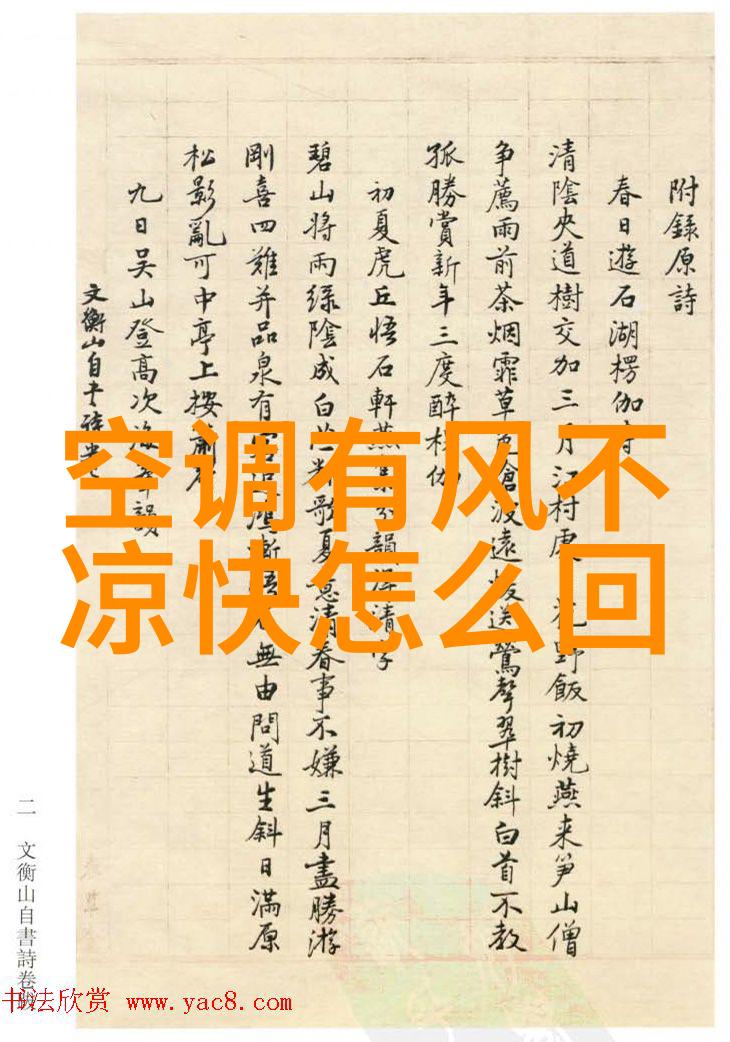 附錄原詩
春日遊石湖楞伽寺
清陰央道樹交加三月江村處花野飯初燒燕来笋山僧
争薦雨前茶烟霏草色倉波遠坂送鶯聲翠樹斜白首不教
孤勝賞新年三度醉楞伽
初夏虎丘悟石軒燕集分韻得清字
碧山将雨緑陰成白苎歌夏意清春事不嫌三月盡勝游
剛喜四難并品泉有無由問道生斜日滿原
松影亂可中亭上按簫
九日吴山登高次韻
文衡山自書詩卷
空调有风不
凉快怎么回
二 文衡山自書詩卷跋
书法欣赏 www.yac8.com